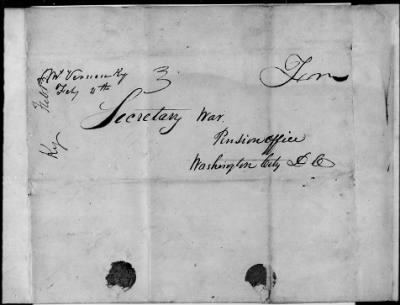 Mt Vernon Ky
Feby 4th
3
Free
Secretary War
Pension office
Washington City D C
Ky